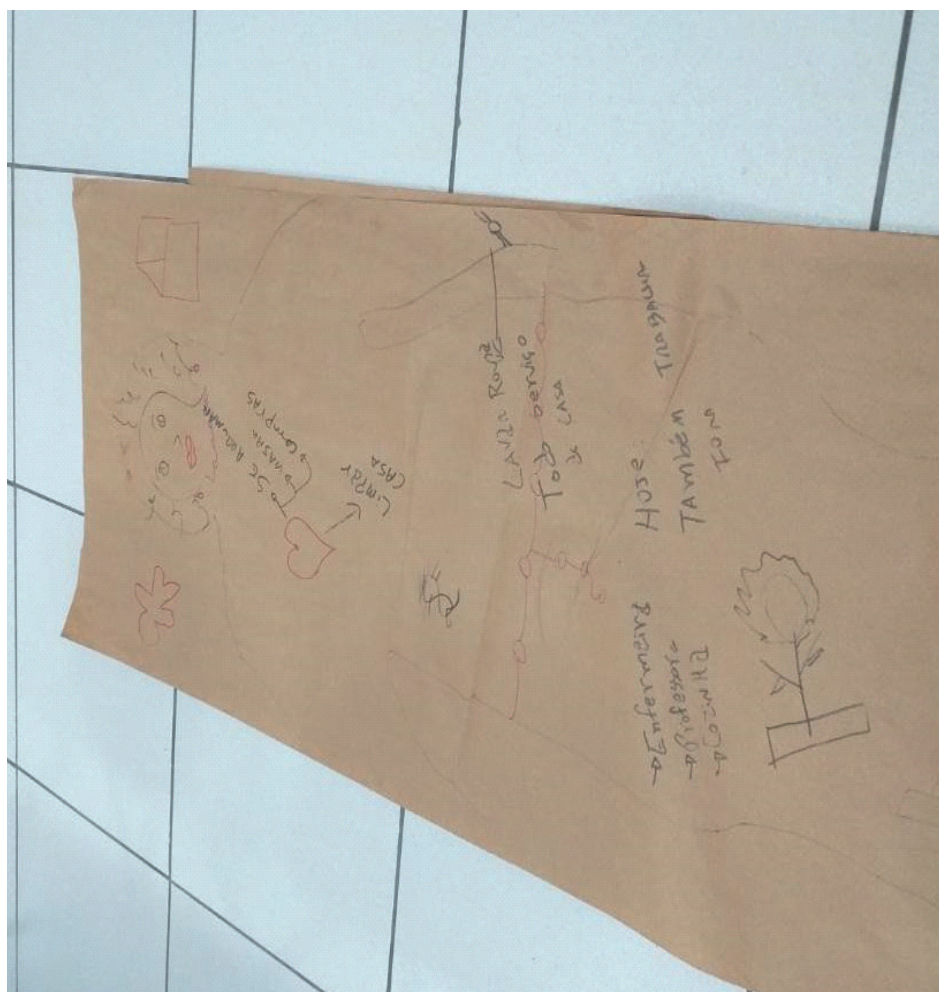 SE ARRUMAR
VIAJAR
COMPRAS
LIMPAR
CASA
LAVAR ROUPA
Todo serviço
de CASA
HOSE
TAMBÉM TRABALHA
FORA
→ Enfermeira
→ Professora
→ COZINHA